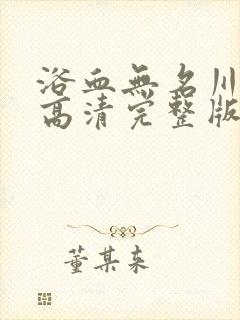 浴血無名川
高清完整版
董某来